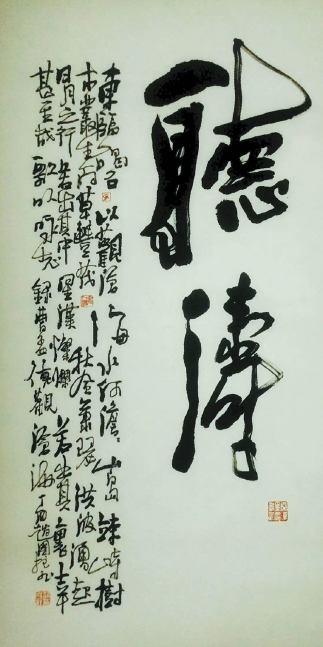 聽濤
東臨碣石以觀滄海水何澹々山島竦峙樹
木叢生百草豐茂秋風蕭瑟洪波湧起
日月之行若出其中星漢燦爛若出其裏幸
甚至哉歌以詠志錄曹孟德觀滄海丁酉趙國